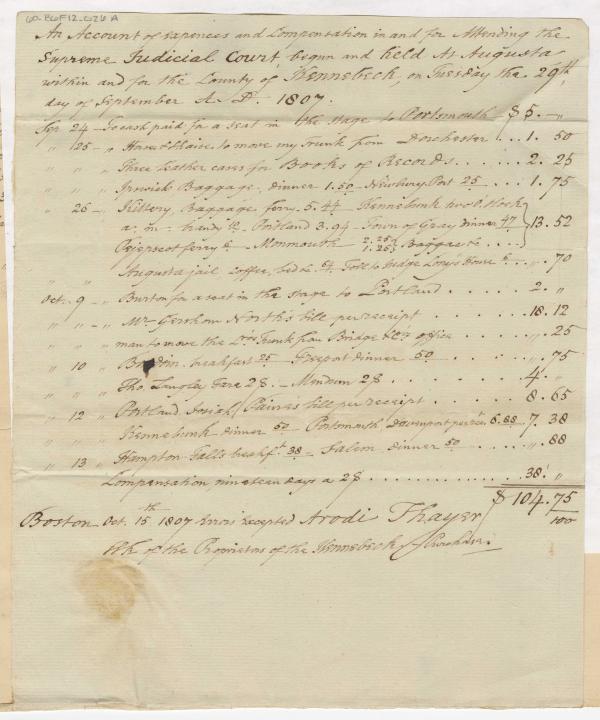 60.B6F12.026A
An Account of Expences and Compensation in and for Attending the
Supreme Judicial Court, begun and held At Augusta
within and for the County of Kennebeck, on Tuesday the 29th
day of September A. D. 1807.
Sep 24 – To cash paid for a seat in the stage to Portsmouth $5. "
" 25 – " Horse & Chaise to move my trunk from Dorchester . 1. 50
" " " Three leather cases for Books of Records . . . . . 2. 25
" " " Ipswich Baggage, dinner 1.50 – Newbury Port 25 . . . 1. 75
" 26 – " Kittery, Baggage ferry 5.44 – Kennebunk two o'clock
a. m – Portland 3.94 – Town of Gray dinner 47 } 13. 52
ferry &c – Monmouth 2.25 1.25 } Baggage &c . . .
Augusta jail coffee, bed &c Toll to Judge House . . " . 70
Oct. 9 – " Burton for a seat in the stage to Portland . . . 2. "
" " – " Mr Gershom North's bill per receipt . . . . 18. 12
" " " man to move the Trunk from Bridge office . . . " . 25
" 10 " breakfast 25 – Freeport dinner 50 . . . . " . 75
" " " Tho. Longley Fare 2$. – 2$ . . . . . . 4. "
" " " Portland Josiah Paine's bill per receipt . . . . 8. 65
" 12 " Kennebunk dinner 50 – Portsmouth, Davenport per 6.88 7. 38
" 13 " Hampton-falls breakft 38 – Salem dinner 50 . . . " . 88
Compensation nineteen days a 2$ . . . . . . . 38. "
$ 104. 75/100
Boston – Oct. 15th 1807 Errors Excepted Arodi Thayer
of the Proprietors of the Kennebeck Purchase.